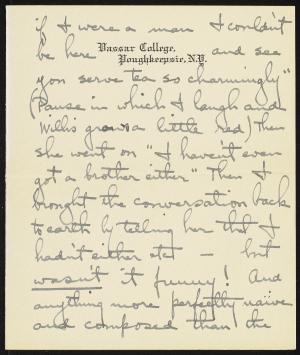 if I were a man I couldn't
Vassar College,
Poughkeepsie, N.Y.
be here and see
you serve tea so charmingly"
(Pause in which I laugh and
Willis grows a little red) Then
she went on "I haven't even
got a brother either" Then I
brought the conversation back
to earth by telling her that I
hadn't either etc — but
wasn't it funny! And
anything more perfectly naïve
and composed than the